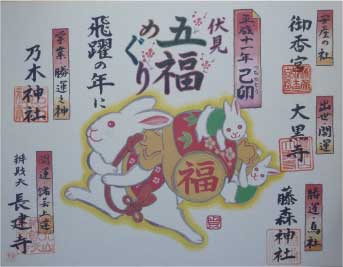 安産の社
御香宮
出世・開運
大黒寺
勝運・馬社
藤森神社
平成十一年 己卯
つちのとう
伏見
五福
めぐり
飛躍の年に
学業 勝運之神
乃木神社
開運 諸芸上達
辨財天 長建寺
福